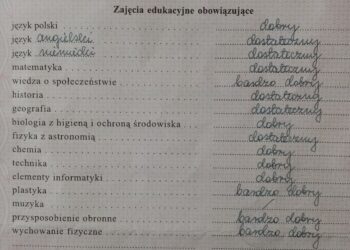 Zajęcia edukacyjne obowiązujące
język polski dobry
język angielski dostateczny
język niemiecki dostateczny
matematyka dostateczny
wiedza o społeczeństwie bardzo dobry
historia dostateczny
geografia dostateczny
biologia z higieną i ochroną środowiska dobry
fizyka z astronomią dostateczny
chemia dobry
technika dobry
elementy informatyki dobry
plastyka bardzo dobry
muzyka /
przysposobienie obronne bardzo dobry
wychowanie fizyczne bardzo dobry